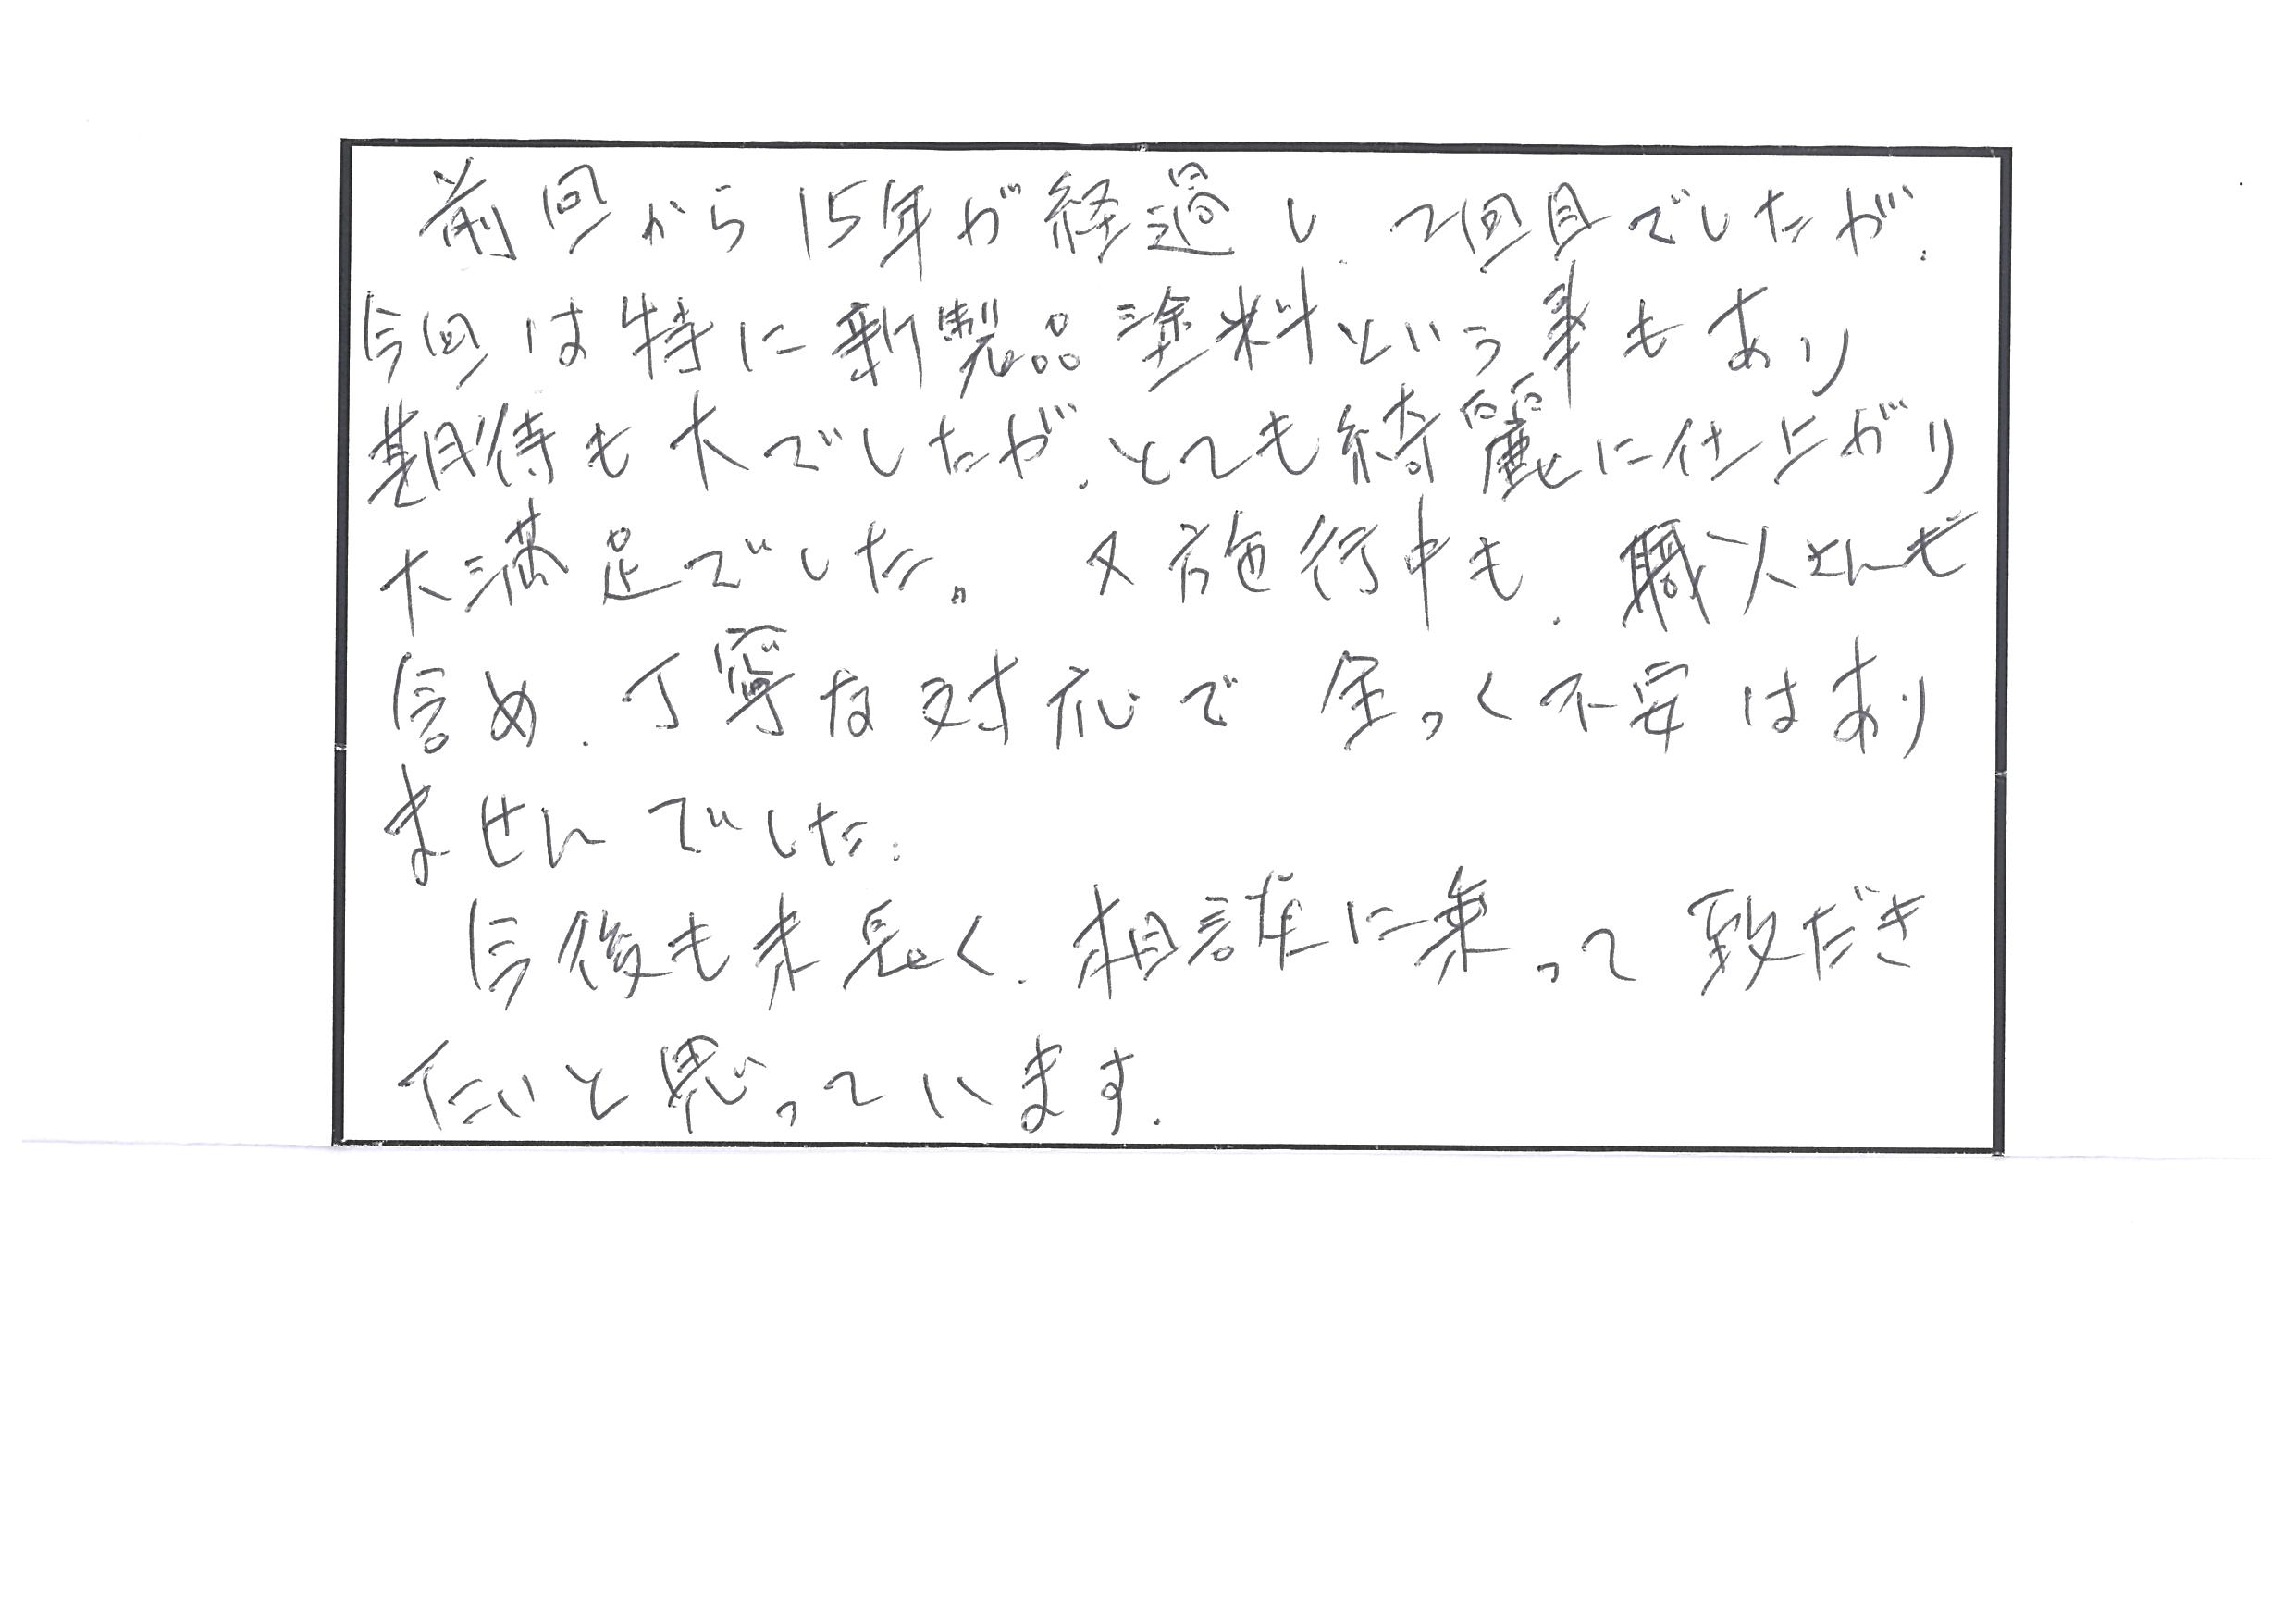 前回から15年が経過し、2回目でしたが、
今回は特に新製品塗料という事もあり
期待も大でしたが、とても綺麗に仕上がり
大満足でした。 又施行中も、職人さんも
含め、丁寧な対応で全っく不安はあり
ませんでした。
今後も末長く、相談に乗って致だき
たいと思っています。